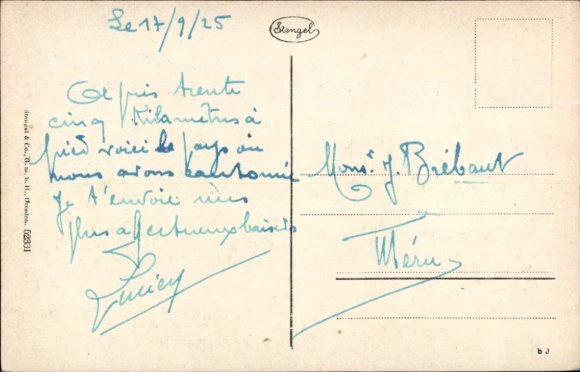 Le 17/9/25
Stengel
Depuis trente
cinq Kilometres à
pied voici le pays où
nous avons cantonné
Je t'envoie mes
plus affectueux baisers
Lucien
Monsr. J. Brébant
Méru
Stengel & Co., G. m. b. H., Dresden. 52331
b J